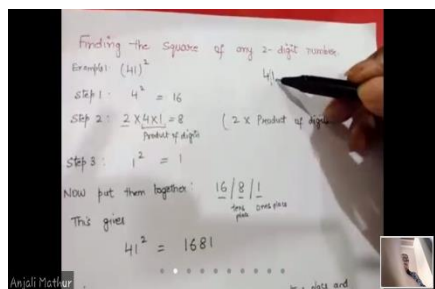 Finding the Square of any 2-digit number
Example: (41)²
41
Step 1: 4² = 16
Step 2: 2 × 4 × 1 = 8 (2 × Product of digits
Product of digits
Step 3: 1² = 1
NOW put them together: 16/8/1
tens place ones place
This gives
41² = 1681
place and
Anjali Mathur